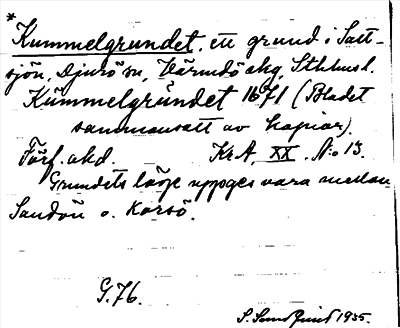 * Kummelgrundet, ett grund i Salt-
sjön, Djurö sn, Värmdö skg, Sthlms l.
Kummelgrundet 1671 (Bladet
sammansatt av kopior).
Förf. okd. Kr.A. XX. No 13.
Grundets läge uppges vara mellan
Sandön o. Korsö.
G.76.
S. Sundquist 1935.